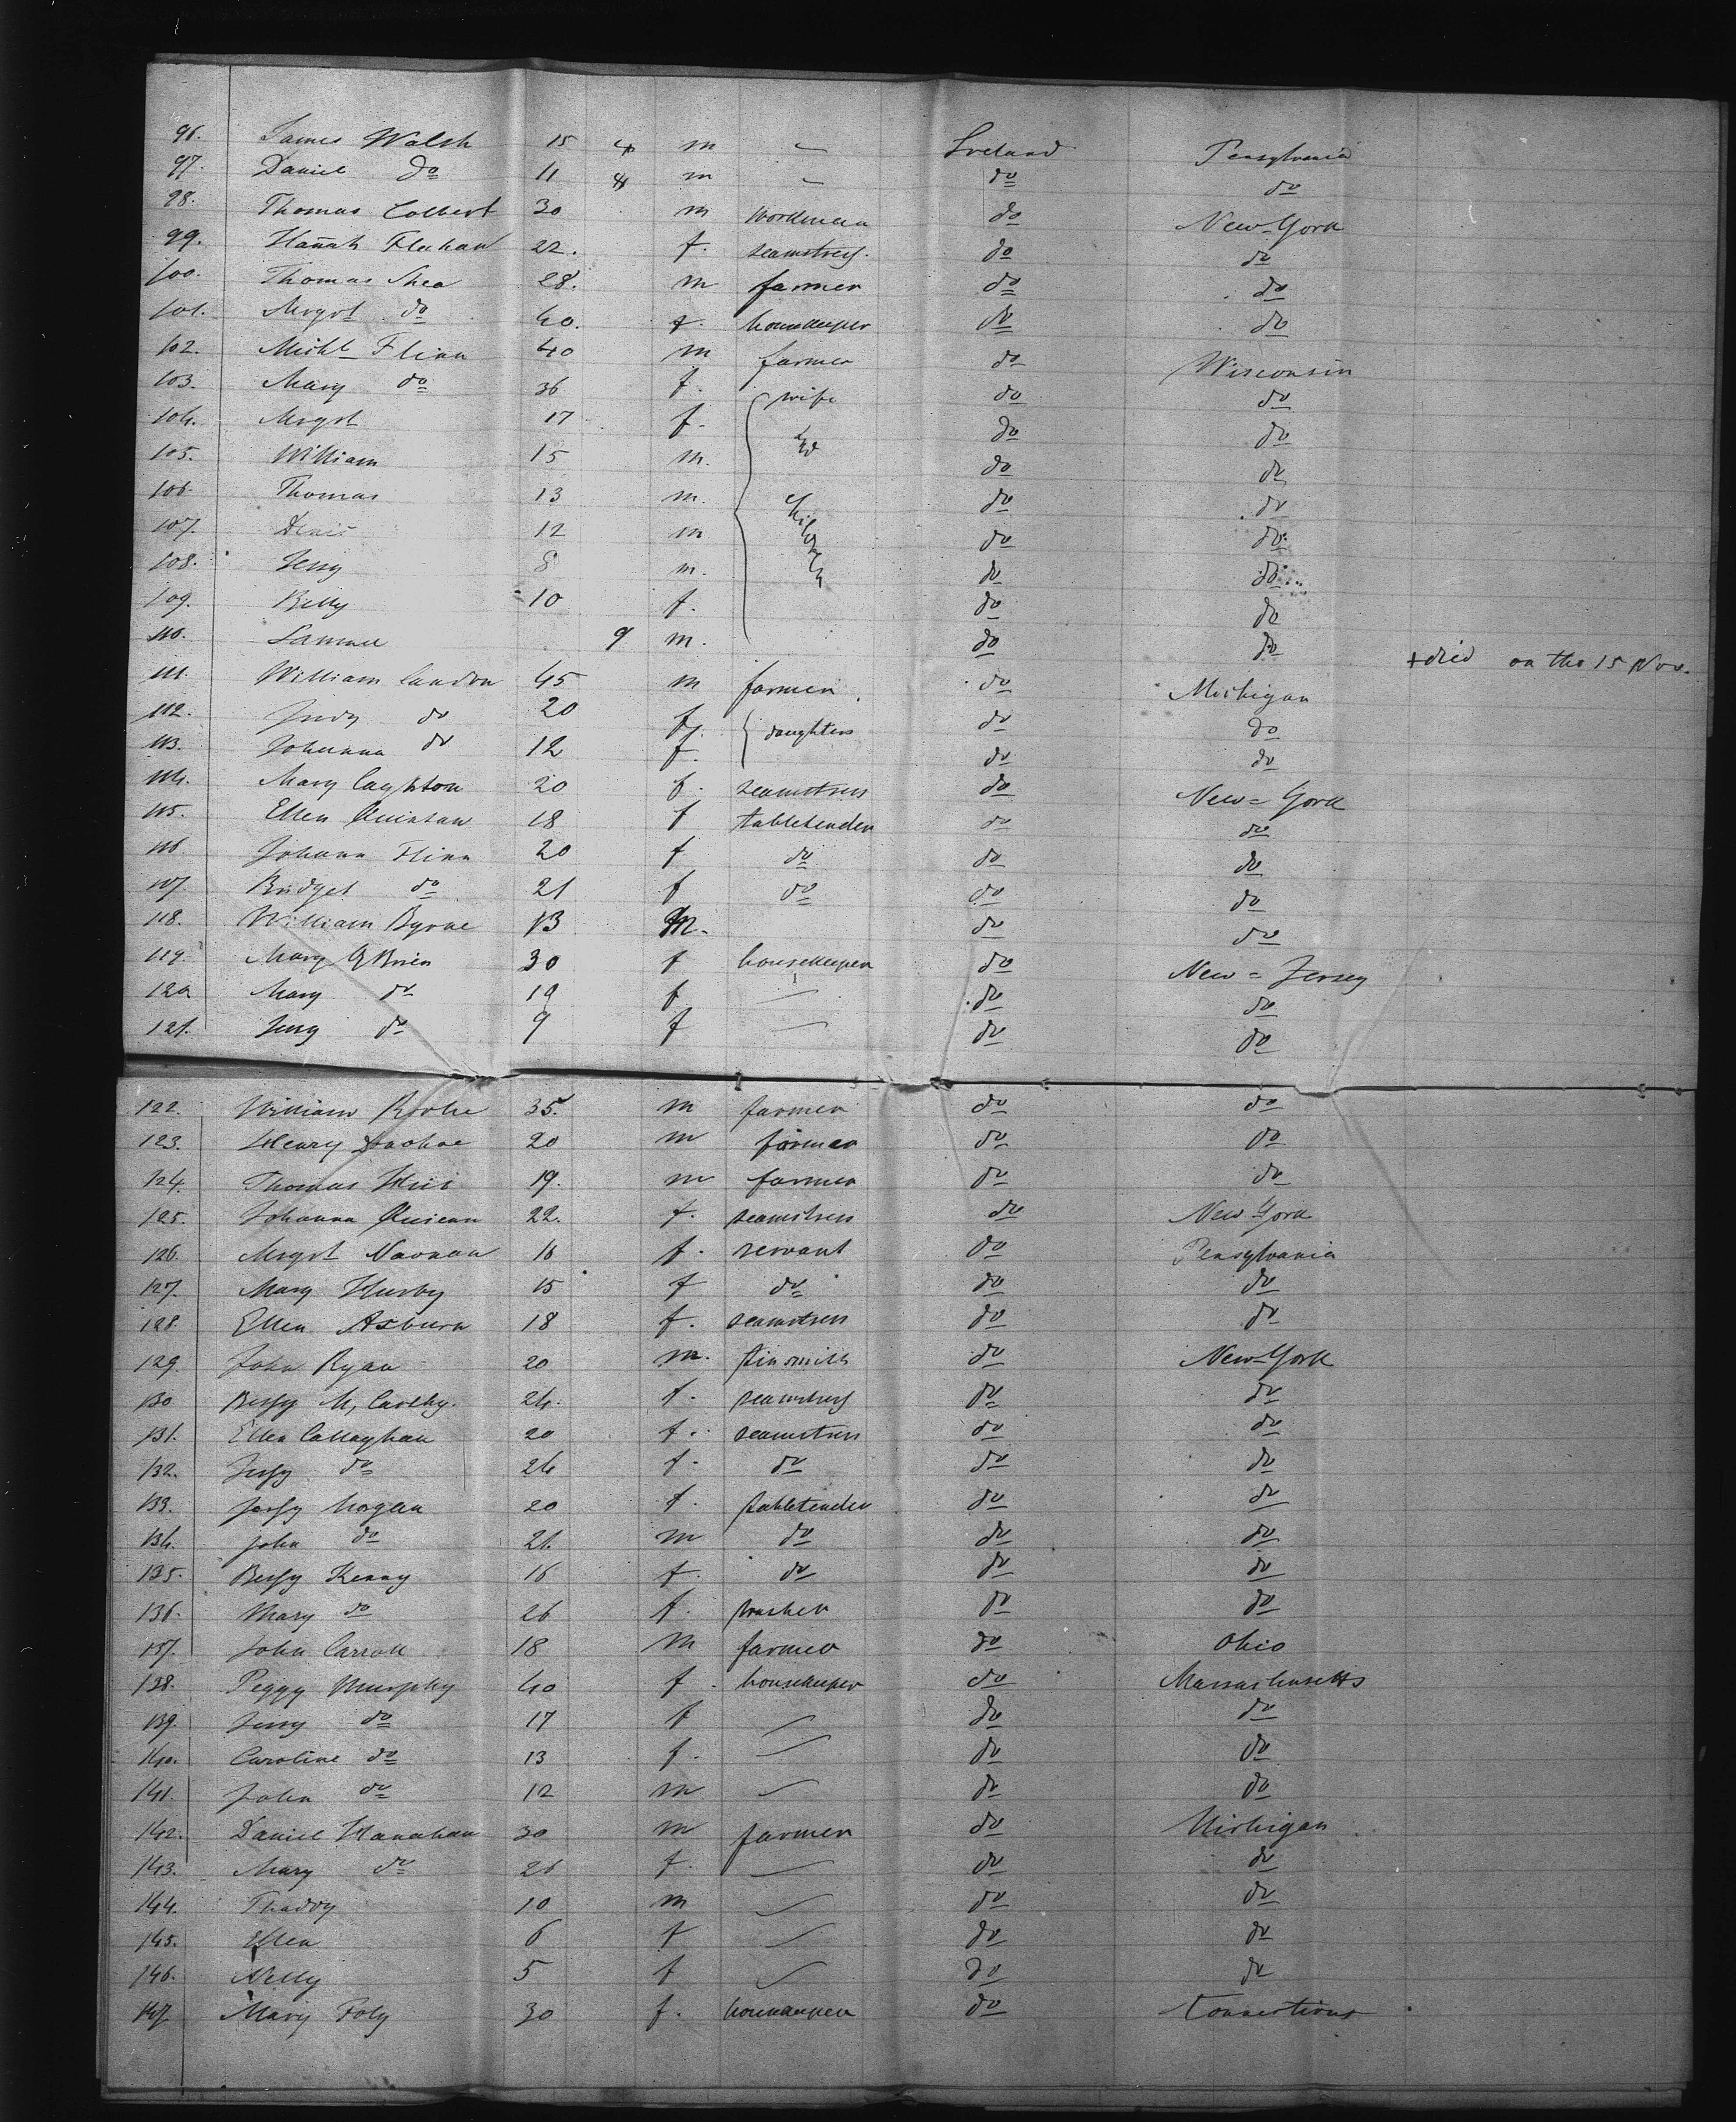 96. James Walsh 15 4 m — Ireland Pensylvania
97. Daniel do 11 m — do do
98. Thomas Colbert 30 m workman do New-York
99. Hannah 22. f. seamstress. do do
100. Thomas Shea 28. m farmer do do
101. Mrgrt do 40. f. housekeeper do do
102. Michl Flinn 40 m farmer do Wisconsin
103. Mary do 36 f. wife do do
104. Mrgrt 17 f. & do do
105. William 15 m. do do
106. Thomas 13 m. children do do
107. Denis 12 m do do
108. Jerry 8 m. do do
109. Billy 10 f. do do
110. 9 m. do do + died on the 15 Nov.
111. William Condon 45 m farmer do Michigan
112. Judy do 20 f. daughters do do
113. Johanna do 12 f. do do
114. Mary 20 f. seamstress do New-York
115. Ellen Quinlan 18 f tabletender do do
116. Johann Flinn 20 f do do do
117. Bridget do 21 f do do do
118. William Byrne 13 m. do do
119. Mary O'Brien 30 f housekeeper do New-Jersey
120. Mary do 19 f — do do
121. do 9 f — do do
122. William 35. m farmer do do
123. Henry 20 m farmer do do
124. Thomas 19. m farmer do do
125. Johanna 22. f. seamstress do New York
126. Mrgrt Noonan 16 f. servant do Pensylvania
127. Mary 15 f do do do
128. Ellen Asburn 18 f. seamstress do do
129. John Ryan 20 m. tinsmith do New-York
130 Bessy Mc Carthy. 24. f. seamstress do do
131. Ellen Callaghan 20 f. seamstress do do
132. do 24 f. do do do
133. Morgan 20 f. tabletender do do
134. John do 21. m do do do
135. Bessy Kenny 16 f. do do do
136. Mary do 26 f. washer do do
137. John Carroll 18 m farmer do Ohio
138. Peggy Murphy 40 f. housekeeper do Massachusetts
139. do 17 f — do do
140. Caroline do 13 f. — do do
141. John do 12 m — do do
142. Daniel Hanahan 30 m farmer do Michigan
143. Mary do 26 f. — do do
144. Thaddy 10 m — do do
145. Ellen 6 f — do do
146. Nelly 5 f — do do
147 Mary Foly 30 f. housekeeper do